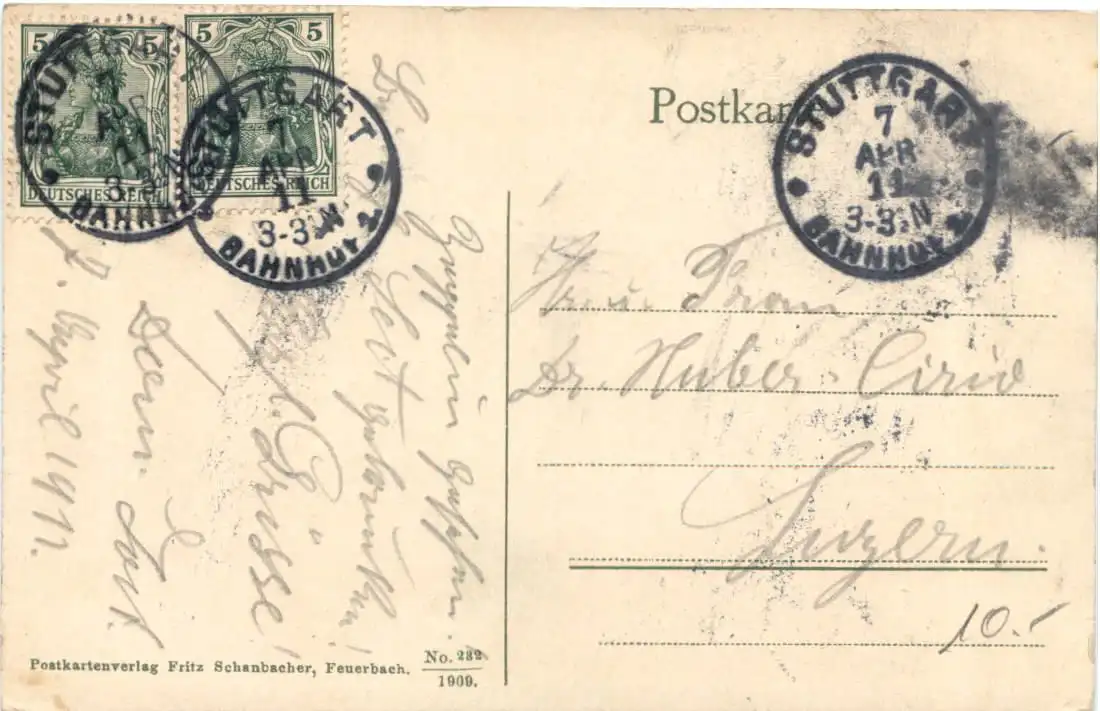 5 5
DEUTSCHES REICH
5 5
DEUTSCHES REICH
STUTTGART
7
APR
11
3-3½N
BAHNHOF 2
STUTTGART
7
APR
11
3-3½N
BAHNHOF 2
Postkarte
STUTTGART
7
APR
11
3-3½N
BAHNHOF 2
Frau
Dr. Huber-
Luzern.
10.-
Zeppelin gesehen.
Sect getrunken!
Grüsse!
7. April 1911.
Postkartenverlag Fritz Schanbacher, Feuerbach.
No. 232
1909.